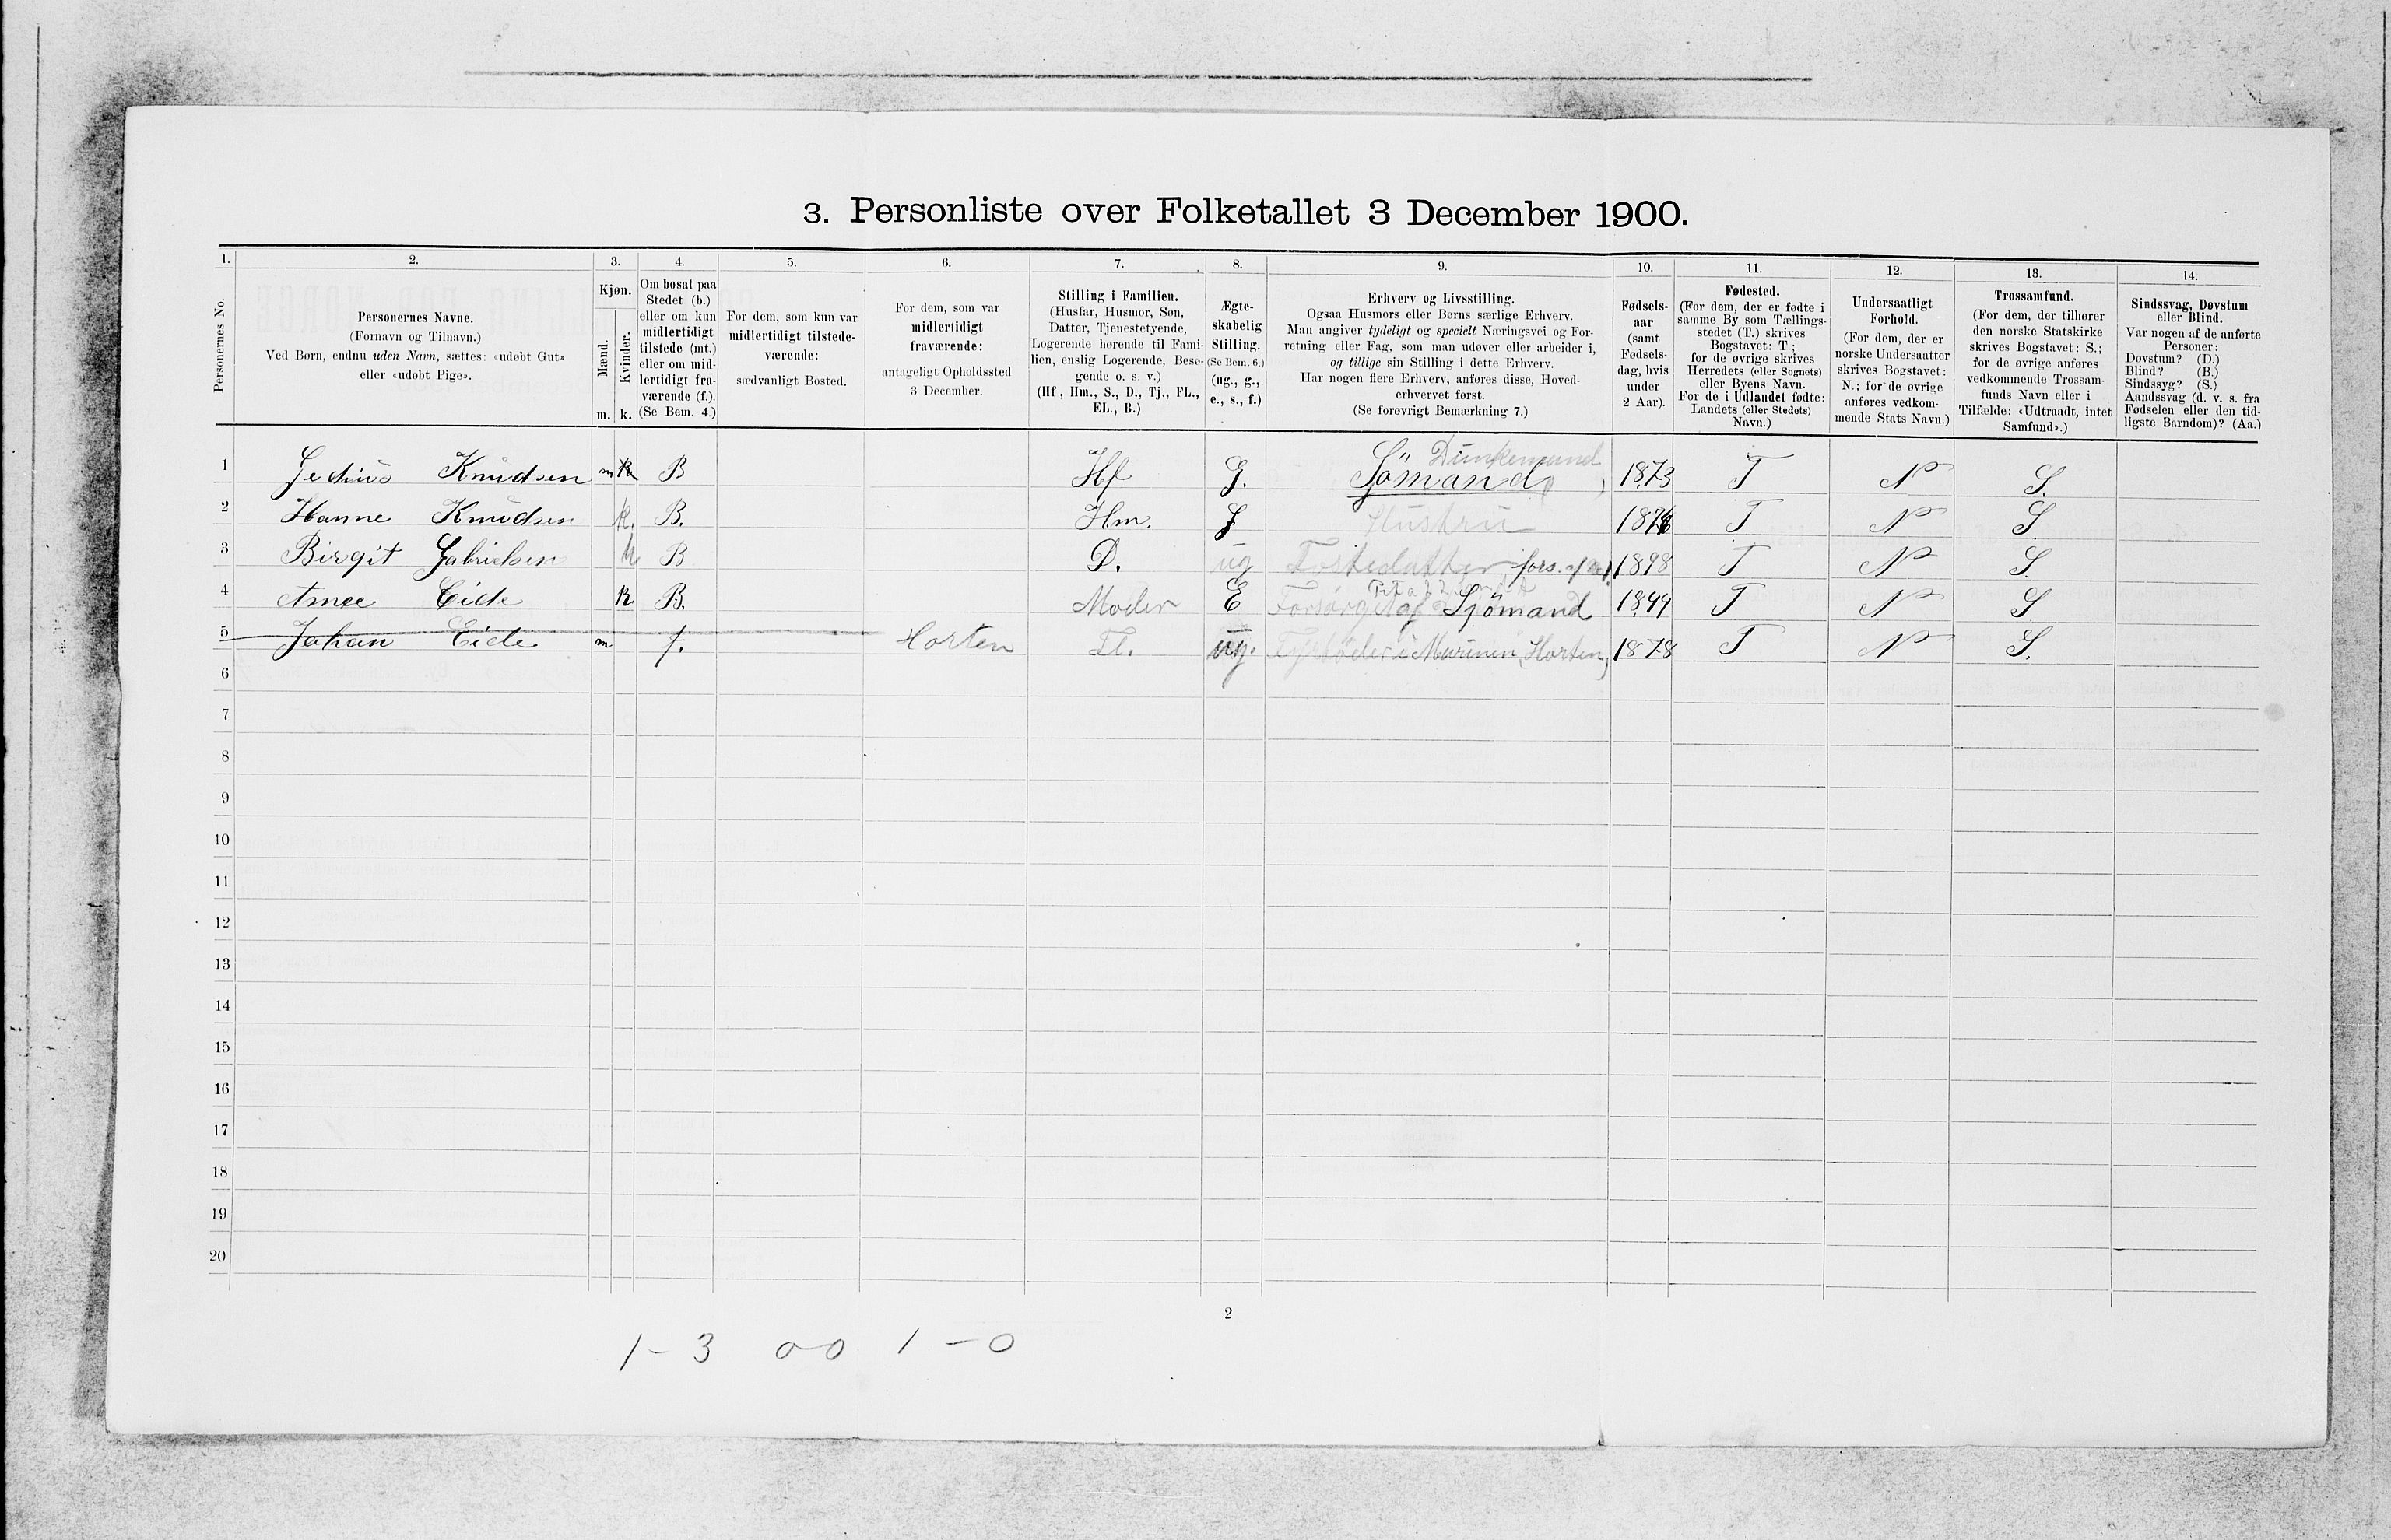 3. Personliste over Folketallet 3 December 1900.
1. 2. 3. 4. 5. 6. 7. 8. 9. 10. 11. 12. 13. 14.
Personernes No.
Personernes Navne.
(Fornavn og Tilnavn.)
Ved Børn, endnu uden Navn, sættes: «udøbt Gut»
eller «udøbt Pige».
Kjøn.
Mænd.
Kvinder.
m. k.
Om bosat paa
Stedet (b.)
eller om kun
midlertidigt
tilstede (mt.)
eller om mid-
lertidigt fra-
værende (f.).
(Se Bem. 4.)
For dem, som kun var
midlertidigt tilstede-
værende:
sædvanligt Bosted.
For dem, som var
midlertidigt
fraværende:
antageligt Opholdssted
3 December.
Stilling i Familien.
(Husfar, Husmor, Søn,
Datter, Tjenestetyende,
Logerende hørende til Fami-
lien, enslig Logerende, Besø-
gende o. s. v.)
(Hf, Hm., S., D., Tj., FL.,
EL., B.)
Ægte-
skabelig
Stilling.
(Se Bem. 6.)
(ug., g.,
e., s., f.)
Erhverv og Livsstilling.
Ogsaa Husmors eller Børns særlige Erhverv.
Man angiver tydeligt og specielt Næringsvei og For-
retning eller Fag, som man udøver eller arbeider i,
og tillige sin Stilling i dette Erhverv.
Har nogen flere Erhverv, anføres disse, Hoved-
erhvervet først.
(Se forøvrigt Bemærkning 7.)
Fødsels-
aar
(samt
Fødsels-
dag, hvis
under
2 Aar).
Fødested.
(For dem, der er fødte i
samme By som Tællings-
stedet (T.) skrives
Bogstavet: T;
for de øvrige skrives
Herredets (eller Sognets)
eller Byens Navn.
For de i Udlandet fødte:
Landets (eller Stedets)
Navn.)
Undersaatligt
Forhold.
(For dem, der er
norske Undersaatter
skrives Bogstavet:
N.; for de øvrige
anføres vedkom-
mende Stats Navn.)
Trossamfund.
(For dem, der tilhører
den norske Statskirke
skrives Bogstavet: S.;
for de øvrige anføres
vedkommende Trossam-
funds Navn eller i
Tilfælde: «Udtraadt, intet
Samfund».)
Sindssvag, Døvstum
eller Blind.
Var nogen af de anførte
Personer:
Døvstum? (D.)
Blind? (B.)
Sindssyg? (S.)
Aandssvag (d. v. s. fra
Fødselen eller den tid-
ligste Barndom)? (Aa.)
1 Knudsen m k B Hf G. Sjömand 1873 T N S.
2 Hanne Knudsen k. B. Hm. G Hustru T N S.
3 Birgit Gabrielsen k B D. ug Fosterdatter fors. af 1898 T N S.
4 Eide k B. Moder E Forsörget af Sjömand 1844 T N S
5 Johan Eide m f. Horten FL. ug. Fyrböder i Marinen Horten, 1878 T N S.
6
7
8
9
10
11
12
13
14
15
16
17
18
19
20
2
1 - 3 00 1 - 0